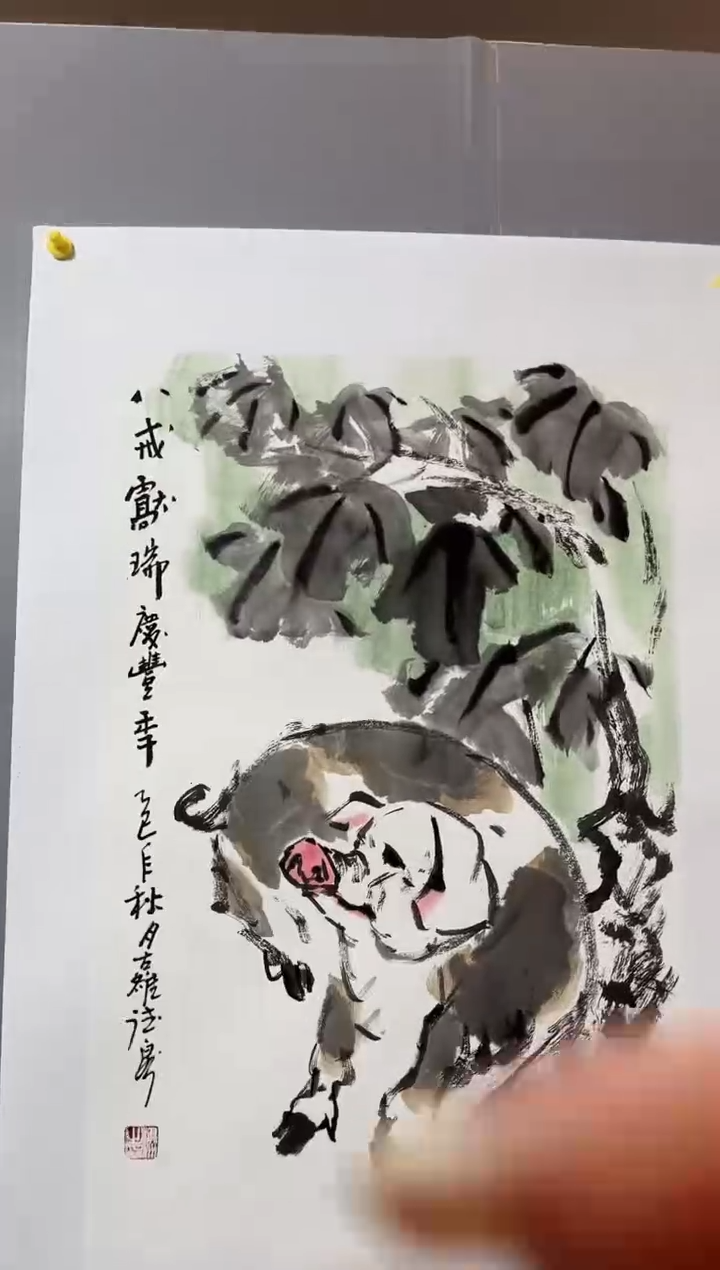 八戒獻瑞慶豐年 乙巳年秋月古雄